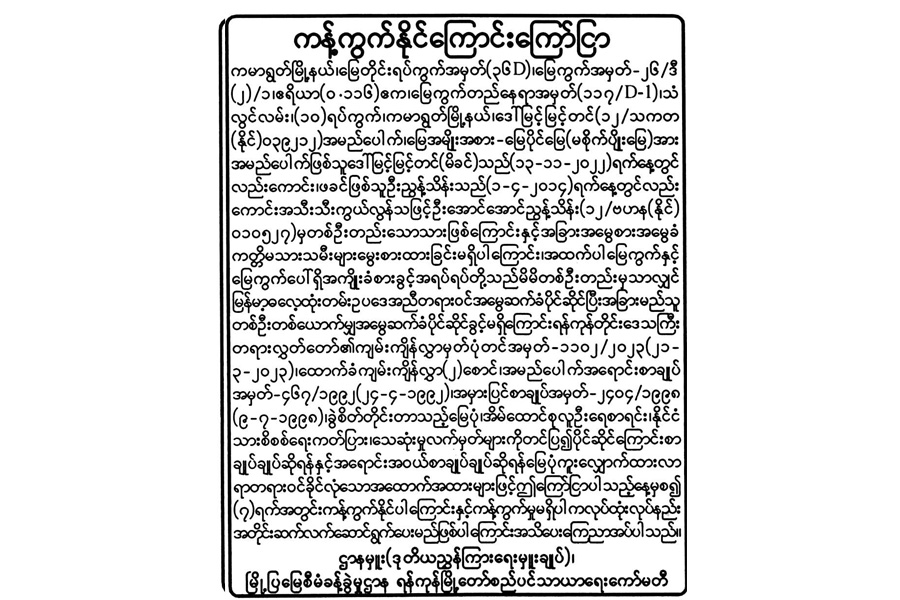 ကန့်ကွက်နိုင်ကြောင်းကြော်ငြာ
ကမာရွတ်မြို့နယ်၊မြေတိုင်းရပ်ကွက်အမှတ်(၃၆D)၊မြေကွက်အမှတ်-၂၆/ဒီ
(၂)/၁၊ဧရိယာ(၀.၁၁၆)ဧက၊မြေကွက်တည်နေရာအမှတ်(၁၁၇/D-1)၊သံ
လွင်လမ်း၊(၁၀)ရပ်ကွက်၊ကမာရွတ်မြို့နယ်၊ဒေါ်မြင့်မြင့်တင်(၁၂/သကတ
(နိုင်)၀၃၉၂၁၂)အမည်ပေါက်၊မြေအမျိုးအစား-မြေပိုင်မြေ(မစိုက်ပျိုးမြေ)အား
အမည်ပေါက်ဖြစ်သူဒေါ်မြင့်မြင့်တင်(မိခင်)သည်(၁၃-၁၁-၂၀၂၂)ရက်နေ့တွင်
လည်းကောင်း၊ဖခင်ဖြစ်သူဦးညွန့်သိန်းသည်(၁-၄-၂၀၁၄)ရက်နေ့တွင်လည်း
ကောင်းအသီးသီးကွယ်လွန်သဖြင့်ဦးအောင်အောင်ညွန့်သိန်း(၁၂/ဗဟန(နိုင်)
၀၁၀၅၂၇)မှတစ်ဦးတည်းသောသားဖြစ်ကြောင်းနှင့်အခြားအမွေစားအမွေခံ
ကတ္တိမသားသမီးများမွေးစားထားခြင်းမရှိပါကြောင်း၊အထက်ပါမြေကွက်နှင့်
မြေကွက်ပေါ်ရှိအကျိုးခံစားခွင့်အရပ်ရပ်တို့သည်မိမိတစ်ဦးတည်းမှသာလျှင်
မြန်မာ့ဓလေ့ထုံးတမ်းဥပဒေအညီတရားဝင်အမွေဆက်ခံပိုင်ဆိုင်ပြီးအခြားမည်သူ
တစ်ဦးတစ်ယောက်မျှအမွေဆက်ခံပိုင်ဆိုင်ခွင့်မရှိကြောင်းရန်ကုန်တိုင်းဒေသကြီး
တရားလွှတ်တော်၏ကျမ်းကျိန်လွှာမှတ်ပုံတင်အမှတ်-၁၁၀၂/၂၀၂၃(၂၁-
၃-၂၀၂၃)၊ထောက်ခံကျမ်းကျိန်လွှာ(၂)စောင်၊အမည်ပေါက်အရောင်းစာချုပ်
အမှတ်-၄၆၇/၁၉၉၂(၂၄-၄-၁၉၉၂)၊အမှားပြင်စာချုပ်အမှတ်-၂၄၀၄/၁၉၉၈
(၉-၇-၁၉၉၈)၊ခွဲစိတ်တိုင်းတာသည့်မြေပုံ၊အိမ်ထောင်စုလူဦးရေစာရင်း၊နိုင်ငံ
သားစိစစ်ရေးကတ်ပြား၊သေဆုံးမှုလက်မှတ်များကိုတင်ပြ၍ပိုင်ဆိုင်ကြောင်းစာ
ချုပ်ချုပ်ဆိုရန်နှင့်အရောင်းအဝယ်စာချုပ်ချုပ်ဆိုရန်မြေပုံကူးလျှောက်ထားလာ
ရာတရားဝင်ခိုင်လုံသောအထောက်အထားများဖြင့်ဤကြော်ငြာပါသည့်နေ့မှစ၍
(၇)ရက်အတွင်းကန့်ကွက်နိုင်ပါကြောင်းနှင့်ကန့်ကွက်မှုမရှိပါကလုပ်ထုံးလုပ်နည်း
အတိုင်းဆက်လက်ဆောင်ရွက်ပေးမည်ဖြစ်ပါကြောင်းအသိပေးကြေညာအပ်ပါသည်။
ဌာနမှူး(ဒုတိယညွှန်ကြားရေးမှူးချုပ်)၊
မြို့ပြမြေစီမံခန့်ခွဲမှုဌာန ရန်ကုန်မြို့တော်စည်ပင်သာယာရေးကော်မတီ